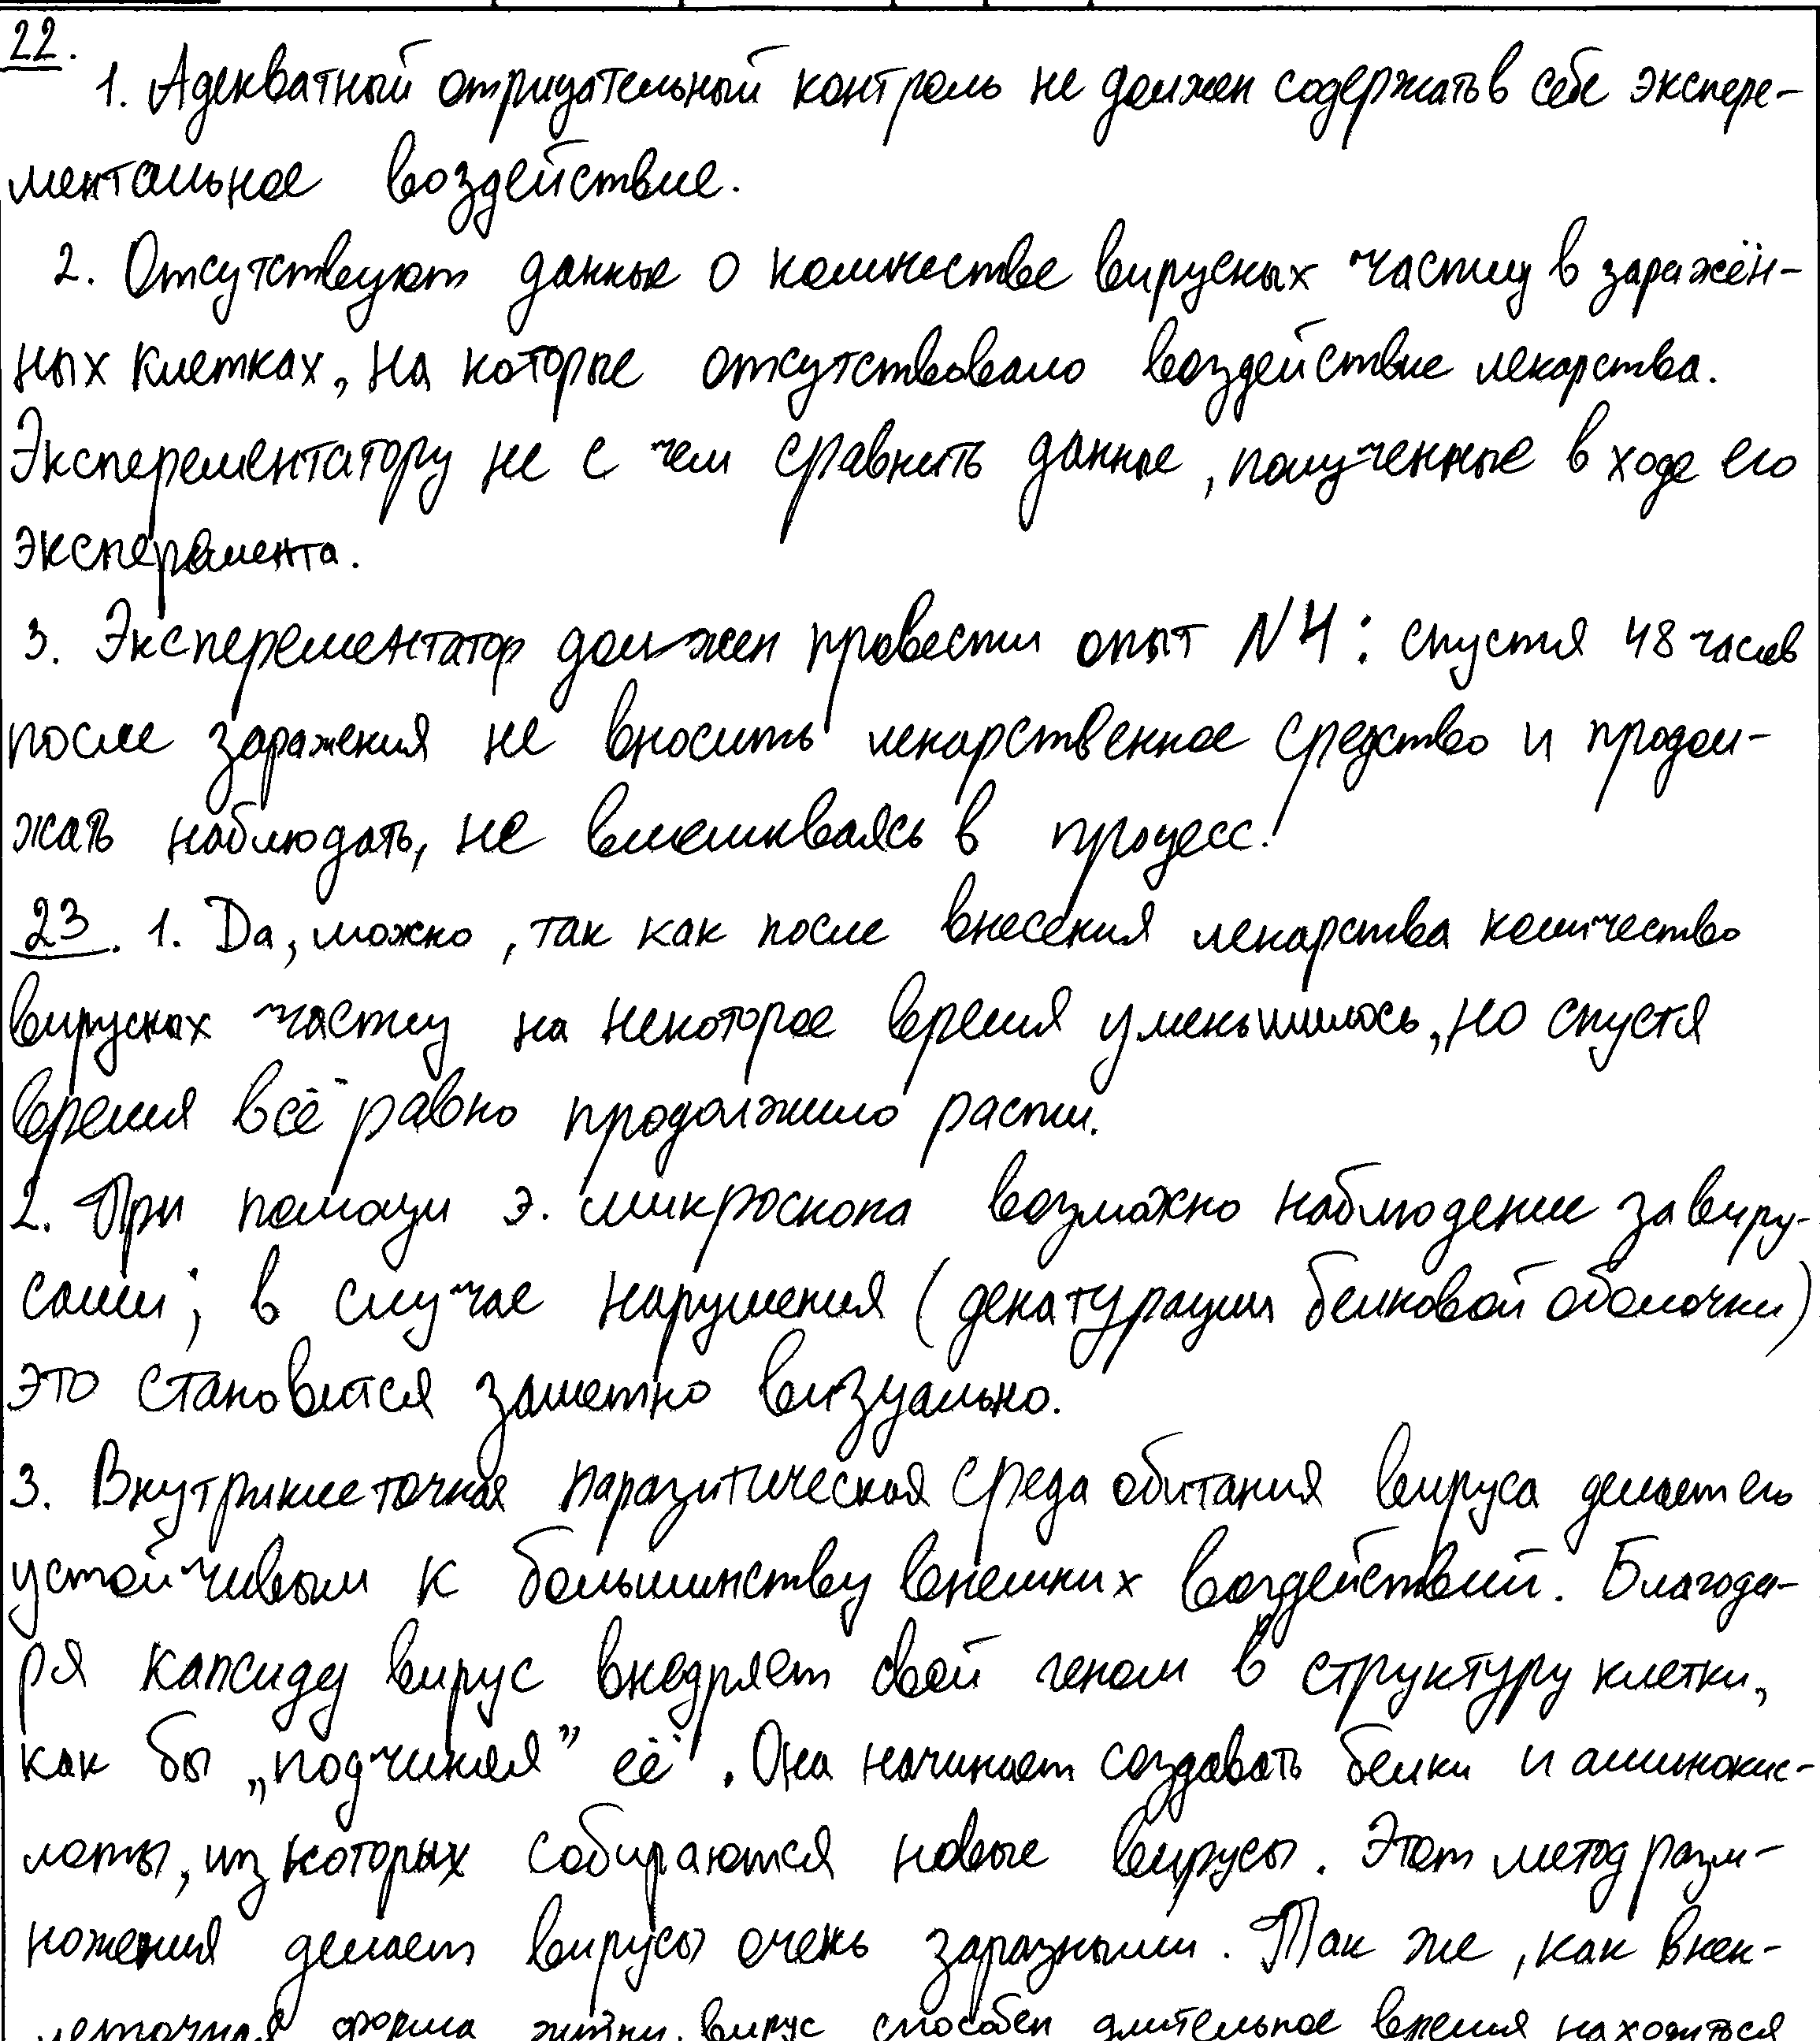 22.
1. Адекватный отрицательный контроль не должен содержать в себе экспере-
ментальное воздействие.
2. Отсутствуют данные о количестве вирусных частиц в заражён-
ных клетках, на которые отсутствовало воздействие лекарства.
Эксперементатору не с чем сравнить данные, полученные в ходе его
эксперемента.
3. Эксперементатор должен провести опыт N4: спустя 48 часов
после заражения не вносить лекарственное средство и продол-
жать наблюдать, не вмешиваясь в процесс.
23. 1. Да, можно, так как после внесения лекарства количество
вирусных частиц на некоторое время уменьшилось, но спустя
время всё равно продолжило расти.
2. При помощи э. микроскопа возможно наблюдение за виру-
сами; в случае нарушения (денатурации белковой оболочки)
это становится заметно визуально.
3. Внутриклеточная паразитическая среда обитания вируса делает его
устойчивым к большинству внешних воздействий. Благода-
ря капсиду вирус внедряет свой геном в структуру клетки,
как бы „подчиняя” её. Она начинает создавать белки и аминокис-
лоты, из которых собираются новые вирусы. Этот метод разм-
ножения делает вирусы очень заразными. Так же, как внек-
леточная форма жизни, вирус способен длительное время находиться